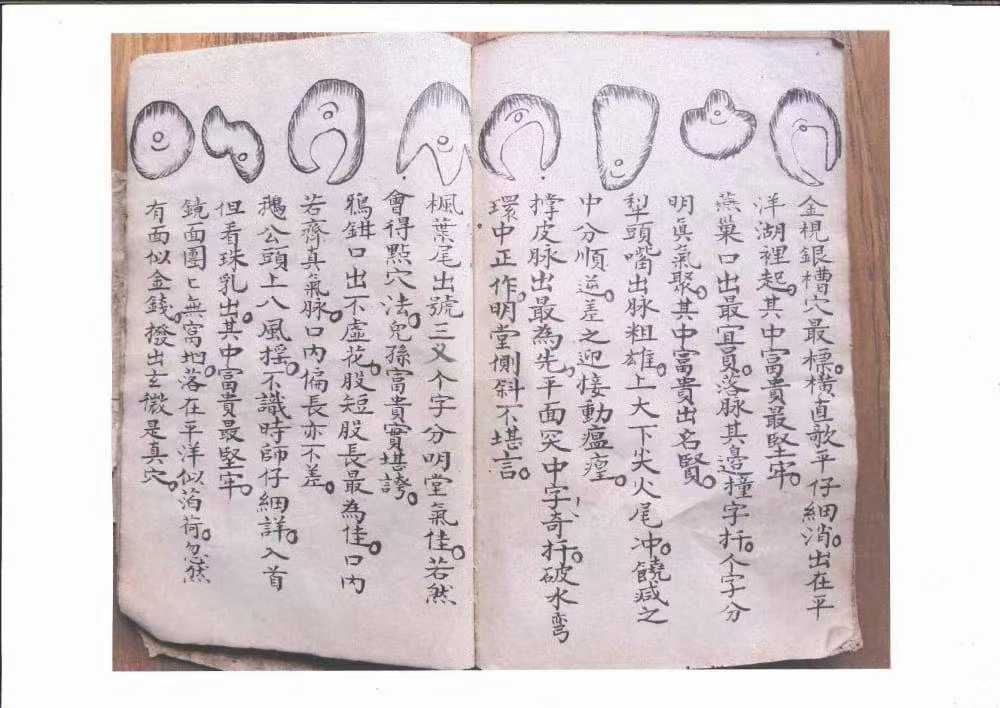 金梘銀槽穴最標橫直敧平仔細消出在平
洋湖裡起其中富貴最堅牢
燕巢口出最宜員落脉其邊撞字扦个字分
明眞氣聚其中富貴出名賢
犁頭嘴出脉粗雄上大下尖火尾冲饒减之
中分順逆差之迎接動瘟瘟
撑皮脉出最為先平面突中字奇扦破水彎
環中正作明堂側斜不堪言
楓葉尾出號三义个字分明堂氣佳若然
會得㸃穴法兒孫富貴實堪誇
鴉鉗口出不虛花股短股長最為佳口内
若齊真氣脉口内偏長亦不差
鵝公頭上八風摇不識時師仔細詳入首
但看珠乳出其中富貴最堅牢
鏡面團匕無窩地落在平洋似萡荷忽然
有面似金錢撥出玄微是真穴